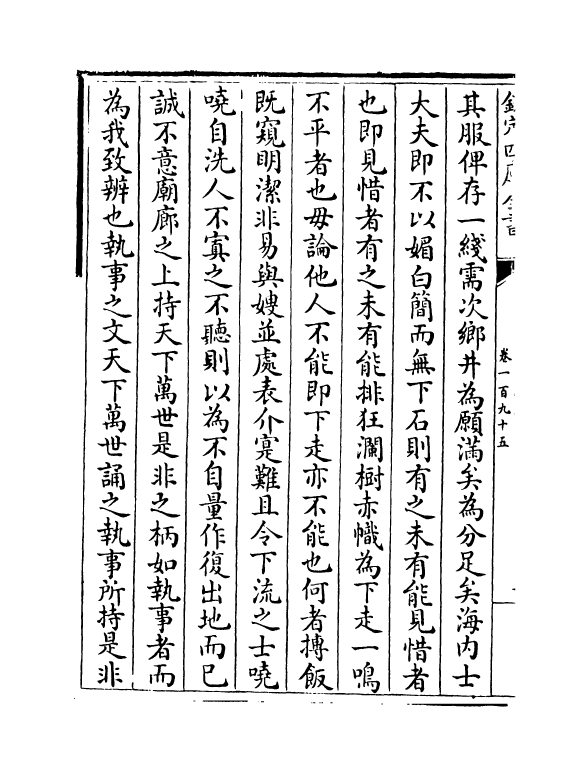 欽定四庫全書
卷一百九十五
其服俾存一綫需次鄉井為願滿矣為分足矣海内士
大夫即不以媚白簡而無下石則有之未有能見惜者
也即見惜者有之未有能排狂瀾樹赤幟為下走一鳴
不平者也毋論他人不能即下走亦不能也何者摶飯
既窺明潔非易與嫂並處表介寔難且令下流之士嘵
嘵自洗人不寘之不聽則以為不自量作復出地而已
誠不意廟廊之上持天下萬世是非之柄如執事者而
為我致辨也執事之文天下萬世誦之執事所持是非